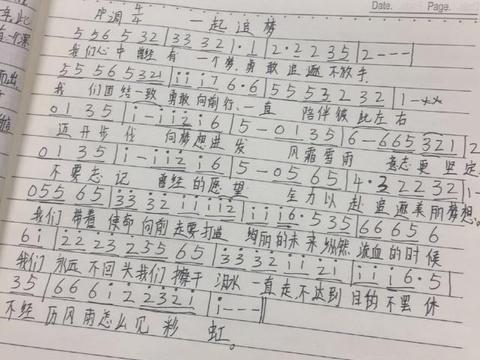 Date. Page.
C调 4/4 一起追梦
5 5 6 5 3 2 | 3 3 3 2 1 · 1 | 2 · 2 2 3 5 | 2 - - - |
我们心中 曾经 有 一个梦, 勇敢 追逐 不放手.
5 5 5 6 5 3 2 1 | i i i 7 6 · 6 | 5 5 5 3 2 3 2 | 1 - **
我们团结一致 勇敢向前行, 一直 陪伴彼此左右
0 1 3 5 | i - i i 2 i 6 | 5 - 0 1 3 5 | 6 - 6 6 5 3 2 1 | 2
迈开步伐 向梦想进发 风霜雪雨 意志更坚定
0 1 3 5 | i - i i 2 i 6 | 5 - 0 5 6 5 | 4 · 3 2 2 3 2 | 1 -
不要忘记 曾经的愿望 全力以赴 追逐美丽梦想。
0 5 5 6 5 | 3 3 3 2 i i i i 2 | i i i 6 · 5 3 5 | 6 6 6 5 6
我们 带着 使命向前走要打造 绚丽的未来 纵然 流血的时候
6 i | 2 2 2 3 2 5 5 6 5 | 3 3 3 2 i i 2 i | i i i 6 · 5
我们 永远 不回头我们 擦干 泪水 一直走,不达到 目的不罢休
3 5 | 6 6 6 i 2 2 3 2 1 | i - - - ‖
不经历风雨怎么见 彩虹。